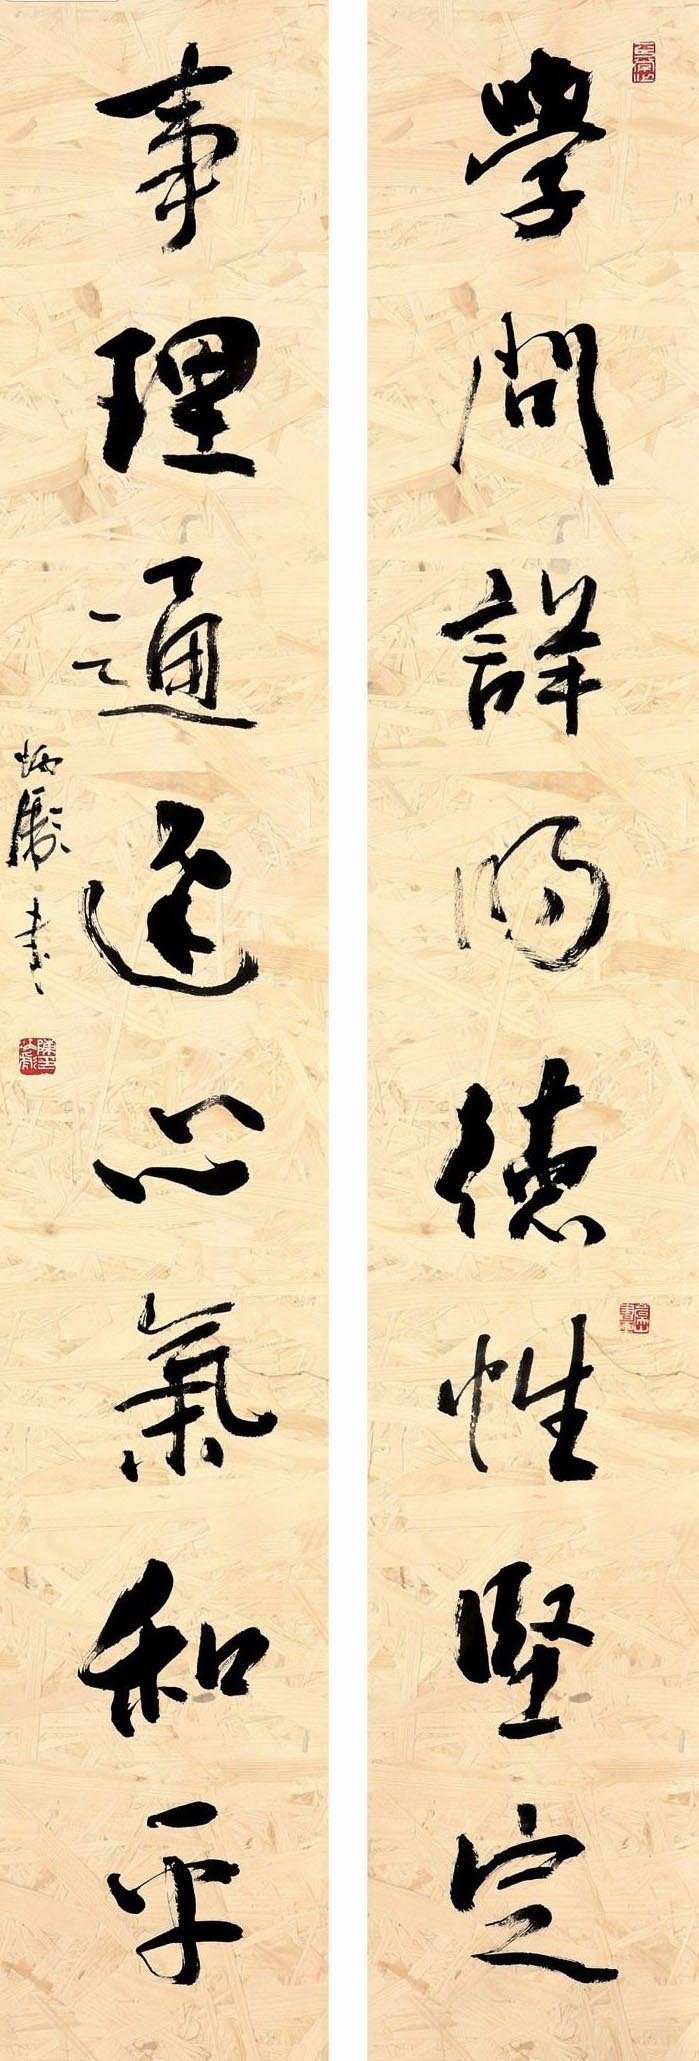 學問詳明德性堅定
事理通達心氣和平